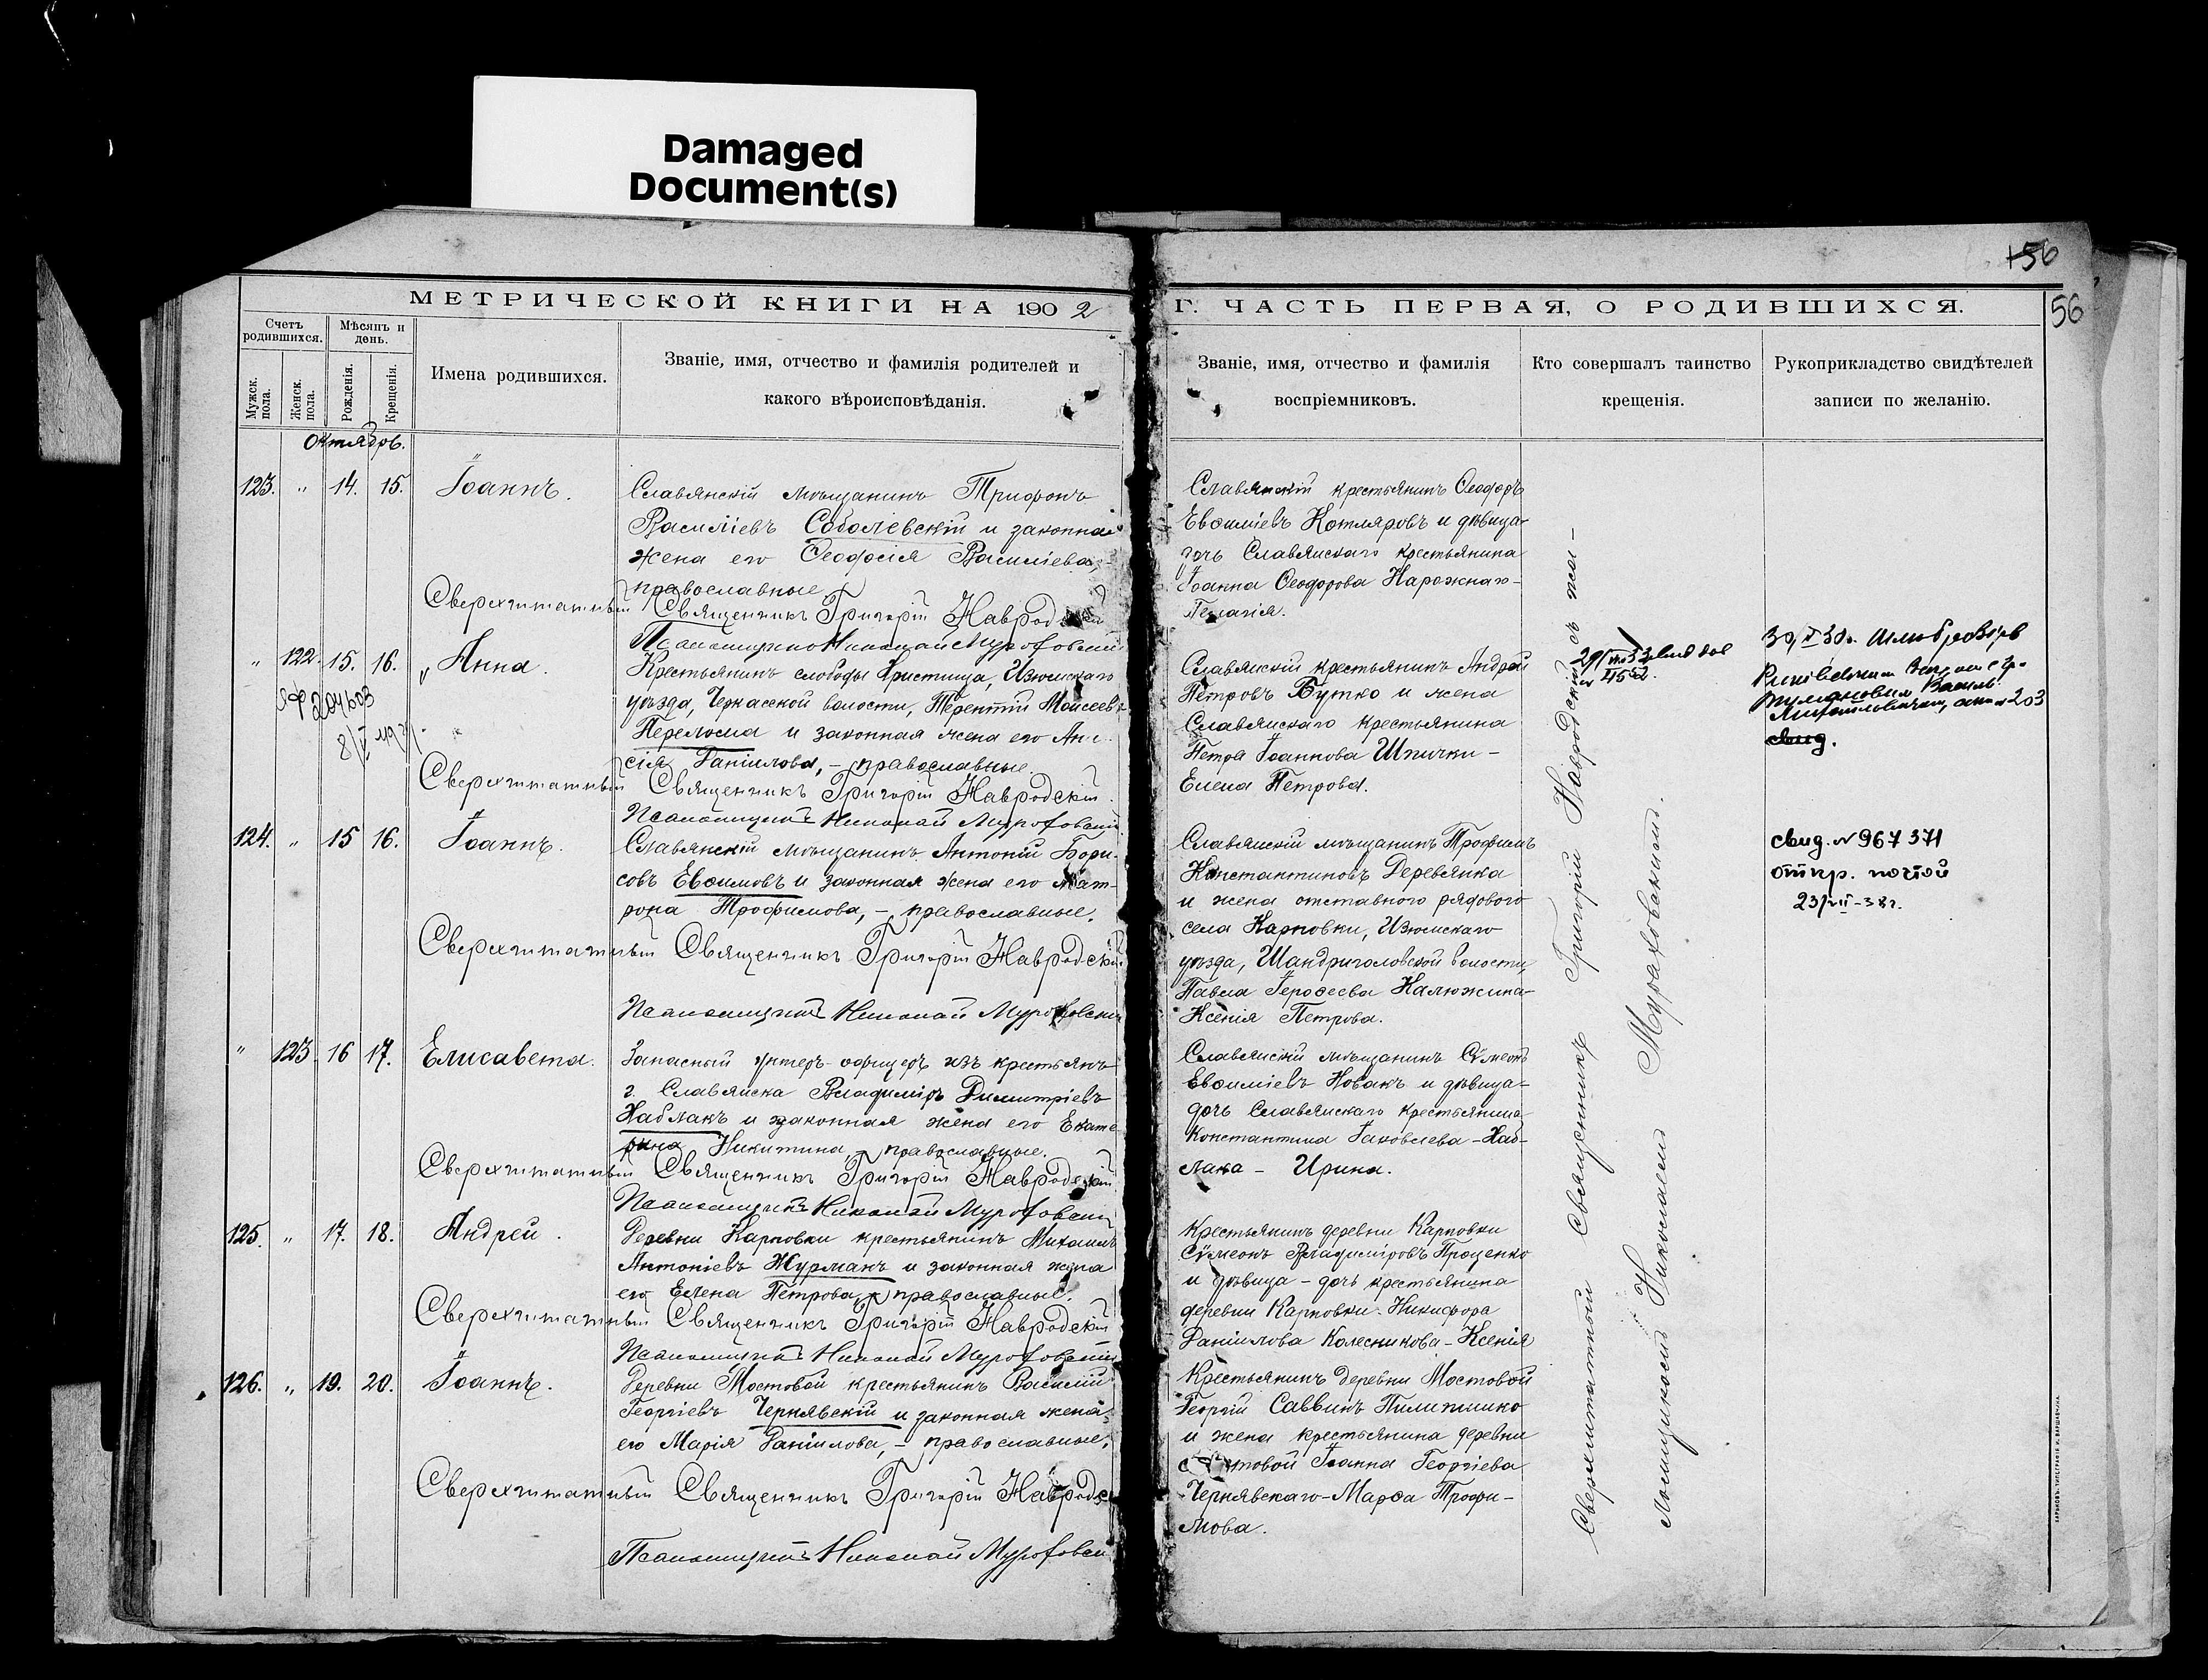 Damaged
Document(s)
156
56
МЕТРИЧЕСКОЙ КНИГИ НА 1902
Счетъ родившихся.
Мѣсяцъ и день.
Мужск. пола.
Женск. пола.
Рожденія.
Крещенія.
Имена родившихся.
Званіе, имя, отчество и фамилія родителей и
какого вѣроисповѣданія.
Октябрь.
123. " 14. 15. Іоаннъ.
Славянскій мѣщанинъ Трифонъ
Василіевъ Соболевскій и законная
жена его Ѳеодосія Василіева,
православные
Сверхштатный Священникъ Григорій Навродскій
Псаломщикъ Николай Мураховскій
" 122. 15. 16. Анна.
Крестьянинъ слободы Христища, Изюмскаго
уѣзда, Черкасской волости, Терентій Моисеевъ
Перелома и законная жена его Ани-
сія Даніилова, - православные.
Сверхштатный Священникъ Григорій Навродскій.
Псаломщикъ Николай Мураховскій
124. " 15 16. Іоаннъ.
Славянскій мѣщанинъ Антоній Бори-
совъ Евѳимовъ и законная жена его Мат-
рона Трофимова, - православные.
Сверхштатный Священникъ Григорій Навродскій
Псаломщикъ Николай Мураховскій
" 123. 16 17. Елисавета.
Запасный унтеръ-офицеръ изъ крестьянъ
г. Славянска Владиміръ Димитріевъ
Наблакъ и законная жена его Екате
рина Никитина, - православные.
Сверхштатный Священникъ Григорій Навродскій
Псаломщикъ Николай Мураховскій
125. " 17. 18. Андрей.
Деревни Карповки крестьянинъ Михаилъ
Антоніевъ Журманъ и законная жена
его Елена Петрова, - православные.
Сверхштатный Священникъ Григорій Навродскій
Псаломщикъ Николай Мураховскій
126. " 19. 20. Іоаннъ.
Деревни Мостовой крестьянинъ Василій
Георгіевъ Чернявскій и законная жена
его Марія Даніилова, - православные.
Сверхштатный Священникъ Григорій Навродс
Псаломщикъ Николай Мураховск
Г. ЧАСТЬ ПЕРВАЯ, О РОДИВШИХСЯ.
Званіе, имя, отчество и фамилія
воспріемниковъ.
Кто совершалъ таинство
крещенія.
Рукоприкладство свидѣтелей
записи по желанію.
Славянскій крестьянинъ Ѳеодоръ
Евѳиміевъ Котляровъ и дѣвица-
дочь Славянскаго крестьянина
Іоанна Ѳеодорова Нарожнаго-
Пелагія.
Славянскій крестьянинъ Андрей
Петровъ Бутко и жена
Славянскаго крестьянина
Петра Іоаннова Шпички -
Елена Петрова.
Славянскій мѣщанинъ Трофимъ
Константиновъ Деревянка
и жена отставного рядового
села Карповки, Изюмскаго
уѣзда, Шандриголовской волости,
Павла Героѳеева Калюжина-
Ксенія Петрова.
Славянскій мѣщанинъ Сѵмеонъ
Евѳиміевъ Новакъ и дѣвица-
дочь Славянскаго крестьянина
Константина Іаковлева-Наб-
лака - Ирина.
Крестьянинъ деревни Карповки
Сѵмеонъ Владиміровъ Проценко
и дѣвица - дочь крестьянина
деревни Карповки Никифора
Даніилова Колесникова-Ксенія
Крестьянинъ деревни Мостовой
Георгій Саввинъ Пилипишко
и жена крестьянина деревни
товой Іоанна Георгіева
Чернявскаго-Марѳа Трофи-
мова.
Сверхштатный Священникъ Григорій Навродскій съ
Псаломщикомъ Николаемъ Мураховскимъ.
свид. № 967371
отпр. почтой
23/VII-38г.